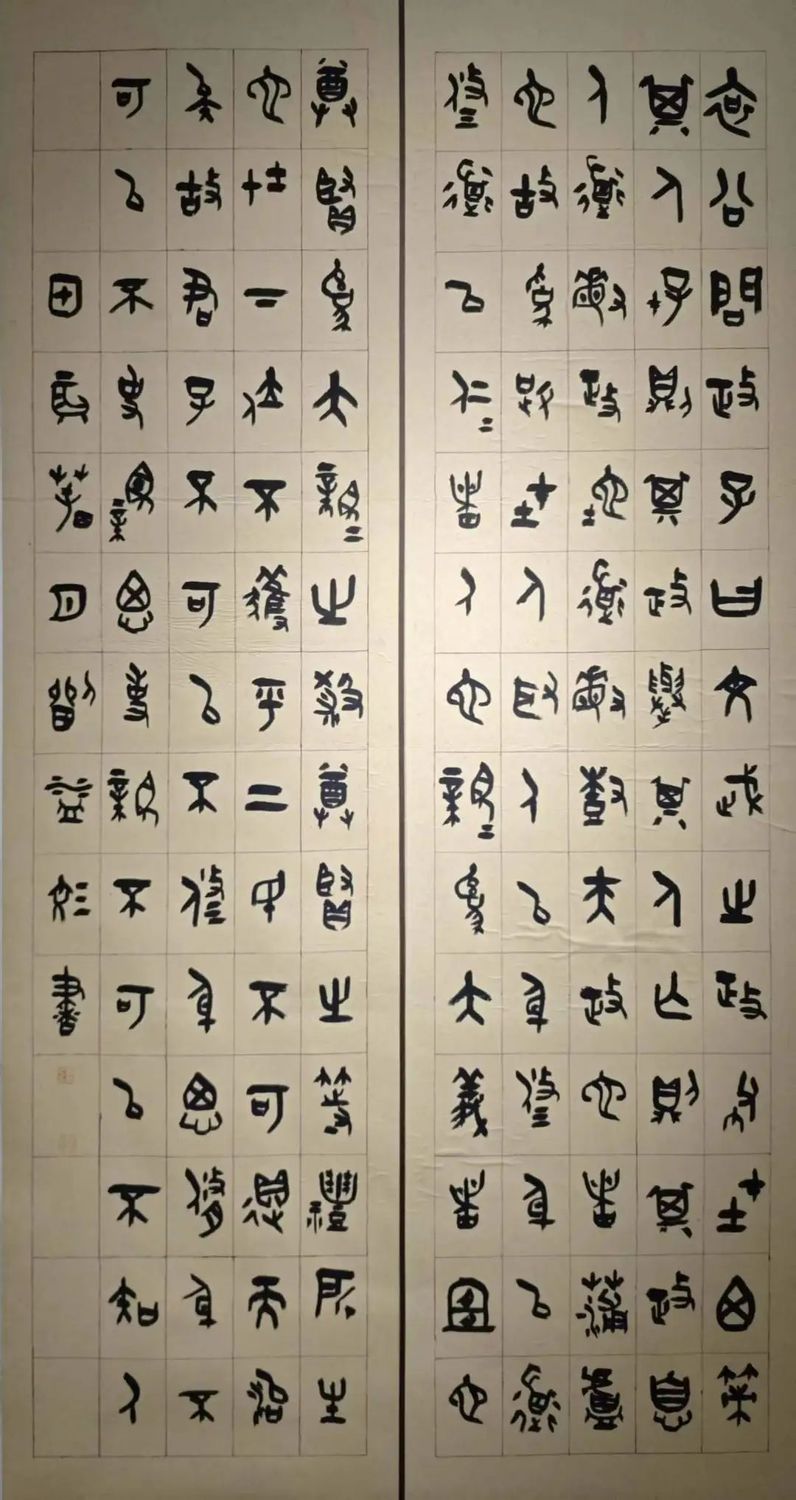 哀公問政子曰文武之政布在方策
其人存則其政舉其人亡則其政息
人道敏政地道敏樹夫政也者蒲盧
也故為政在人取人以身修身以道
修道以仁〻者人也親〻為大義者宜也
尊賢為大親〻之殺尊賢之等禮所生
也在下位不獲乎上民不可得而治
矣故君子不可以不修身思修身不
可以不事親思事親不可以不知人
書